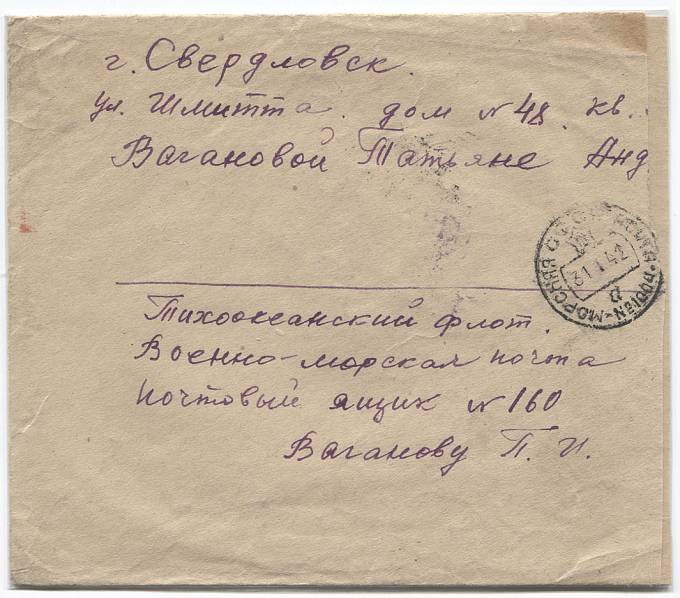 г. Свердловск.
ул. Шмитта. дом № 48. кв.
Вагановой Татьяне Анд
31 1 42
Тихоокеанский флот.
Военно-морская почта
почтовый ящик № 160
Ваганову П. И.